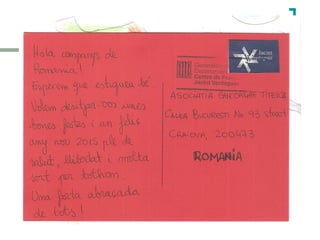 Hola companys de
Romania!
Esperem que estigueu bé
Volem desitjar-vos unes
bones festes i un feliç
any nou 2015 ple de
salut, llibertat i molta
sort per tothom.
Una forta abraçada
de tots!
Generalitat
Departament
Centre de
Jacint Verdaguer
Jacint
ASOCIATIA GHEORGHE TITEICA
CALEA BUCURESTI No 93 street
CRAIOVA, 200473
ROMANIA